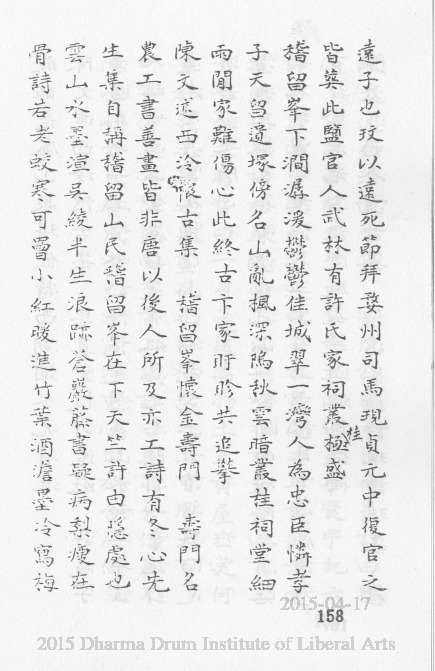 遠子也玟以遠死節拜婺州司馬現貞元中復官之
皆與此鹽官人武林有許氏家祠叢桂極盛
稽留峯下澗潺湲鬱鬱佳城翠一灣人為忠臣憐孝
子天留遺塚傍名山亂楓深塢秋雲暗叢桂祠堂細
雨閒家難傷心此終古卞家盱眕共追攀
陳文述西泠懷古集 稽留峯懷金壽門 壽門名
農工書善畫皆非唐以後人所及亦工詩有冬心先
生集自稱稽留山民稽留峯在下天竺許由隱處也
雲山水墨渲吳綾半生浪跡蒼巖藤書疑病梨瘦在
骨詩若老蛟寒可罾小紅暖進竹葉酒澹墨冷寫梅
158
2015-04-17
2015 Dharma Drum Institute of Liberal Arts